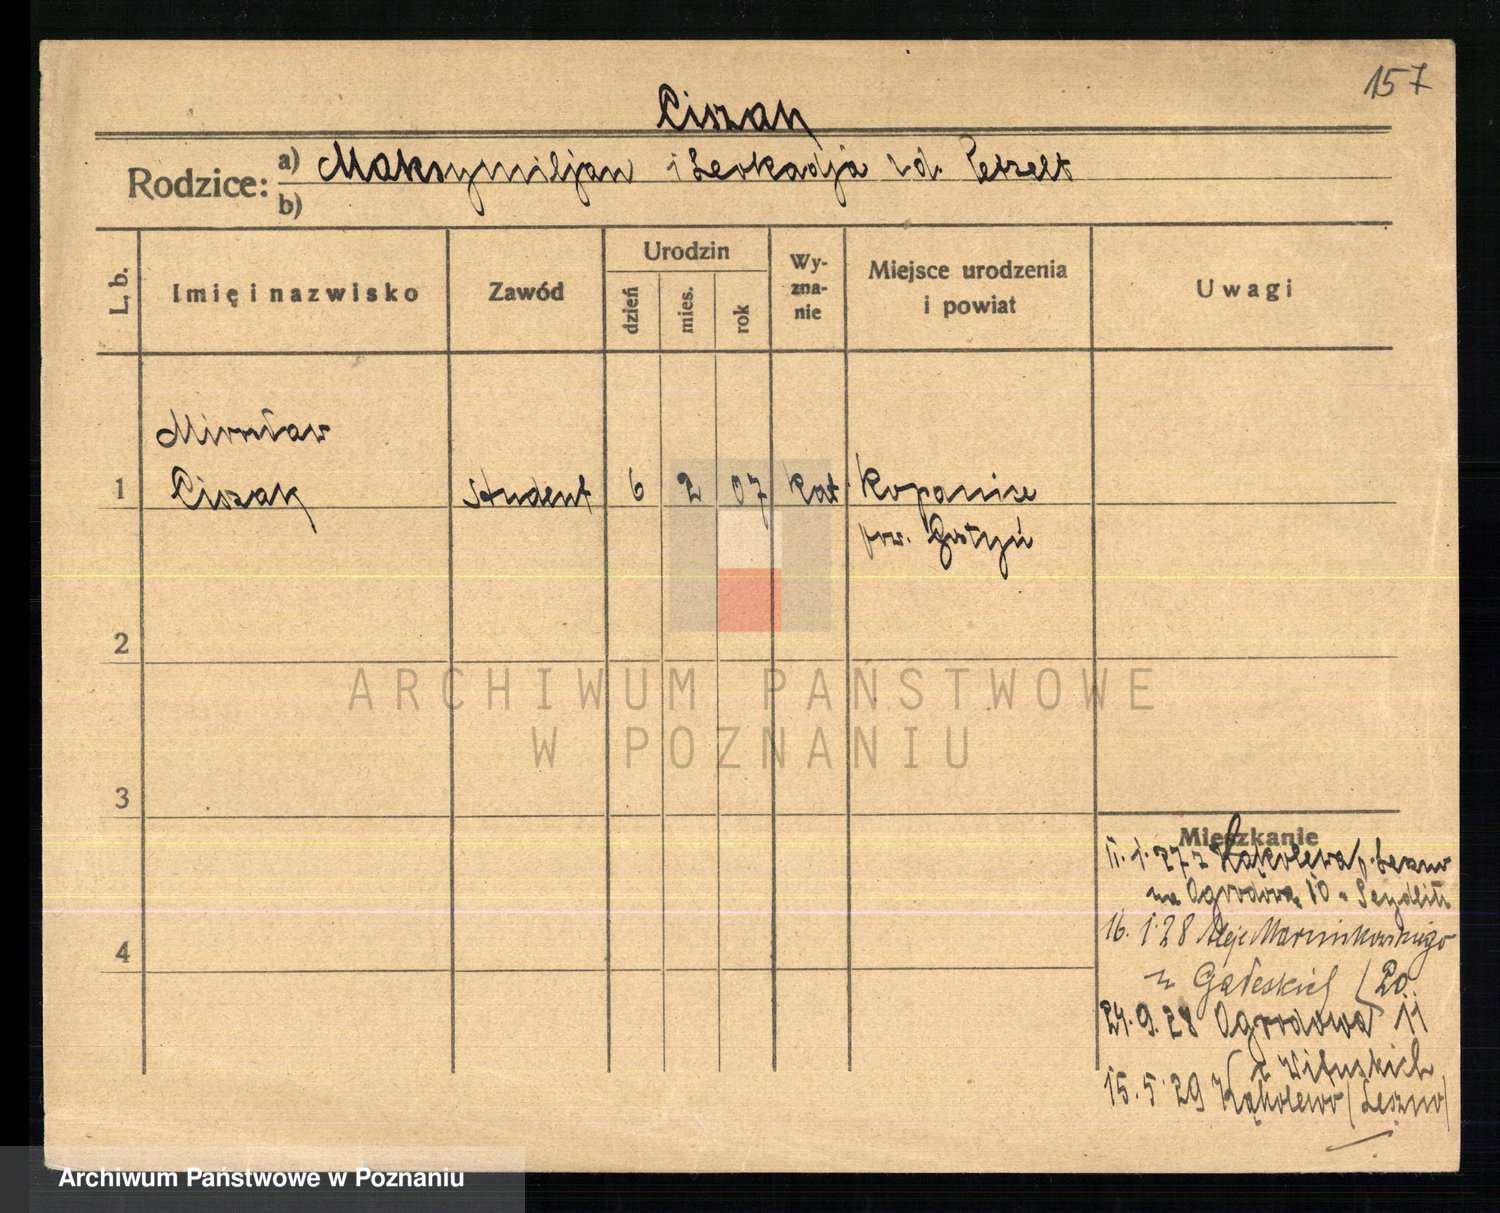 157
Ciszak
Rodzice: a) Maksymiljan i Leokadja zd. Petzelt
b)
L. b. Imię i nazwisko Zawód Urodzin dzień mies. rok Wyznanie Miejsce urodzenia i powiat Uwagi
Mirosław
1 Ciszak student 6 2 07 kat. Kopanice
pow. Gostyń
2
ARCHIWUM PAŃSTWOWE
W POZNANIU
3
Mieszkanie
11.1.27 z Kąkolewa p. Leszno
na Ogrodową 10 u Seydlitz
4
16.1.28 Aleje Marcinkowskiego
u Gałeskich 20
24.9.28 Ogrodowa 11
15.5.29 Kąkolewo (Leszno)
Archiwum Państwowe w Poznaniu